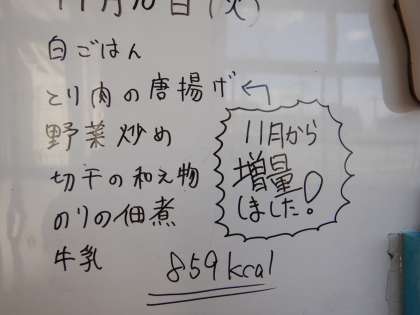 11月10日(火)
白ごはん
とり肉の唐揚げ←
野菜炒め
切干の和え物
のりの佃煮
牛乳
11月から
増量
しました!
859kcal